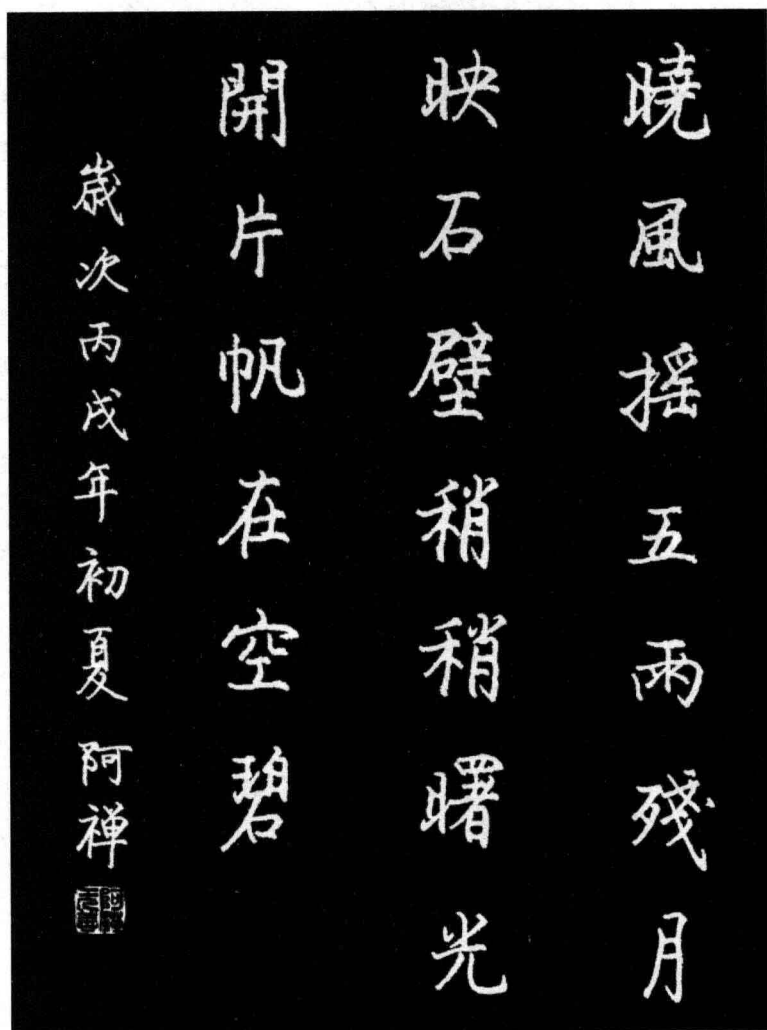 曉風摇五兩殘月
映石壁稍稍曙光
開片帆在空碧
歳次丙戌年初夏 阿禅